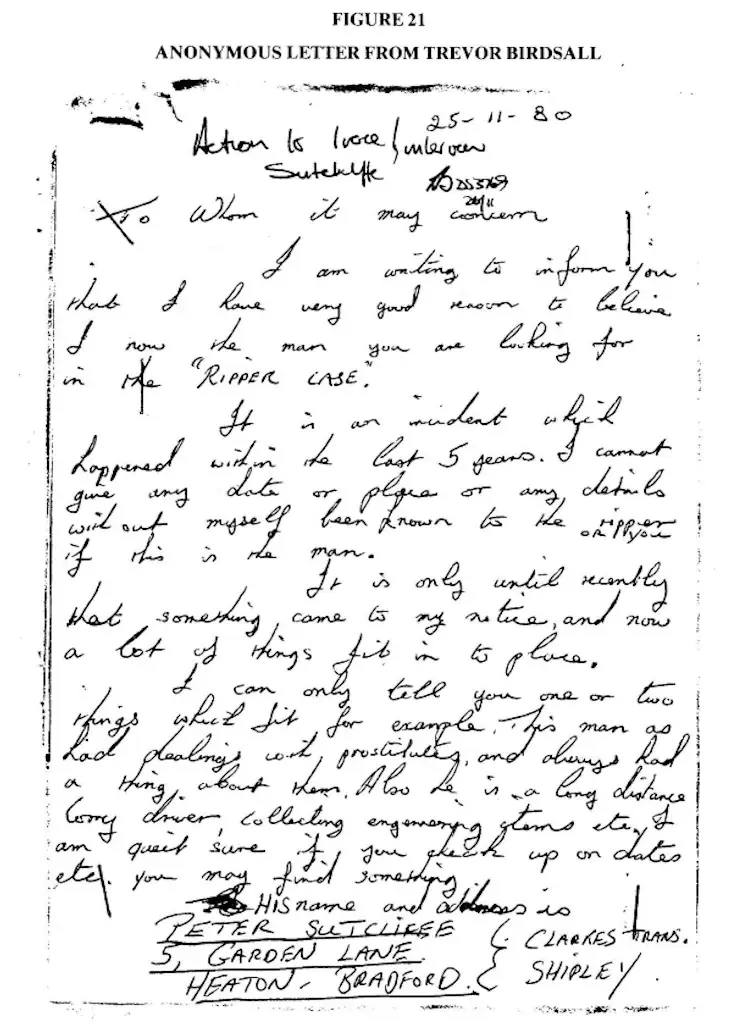 FIGURE 21
ANONYMOUS LETTER FROM TREVOR BIRDSALL
25-11-80
Action to Trace / interview
Sutcliffe
To Whom it may concern
I am writing to inform you
that I have very good reason to believe
I now the man you are looking for
in the "RIPPER CASE".
It is an incident which
happened within the last 5 years. I cannot
give any date or place or any details
with out myself been known to the ripper
or you
if this is the man.
It is only until recently
that something came to my notice, and now
a lot of things fit in to place.
I can only tell you one or two
things which fit for example. This man as
had dealings with prostitutes, and always had
a thing about them. Also he is a long distance
lorry driver, collecting engineering items etc. I
am quiet sure if you check up on dates
etc. you may find something.
HIS name and address is
PETER SUTCLIFFE { CLARKES TRANS.
5, GARDEN LANE. SHIPLEY.
HEATON, BRADFORD.